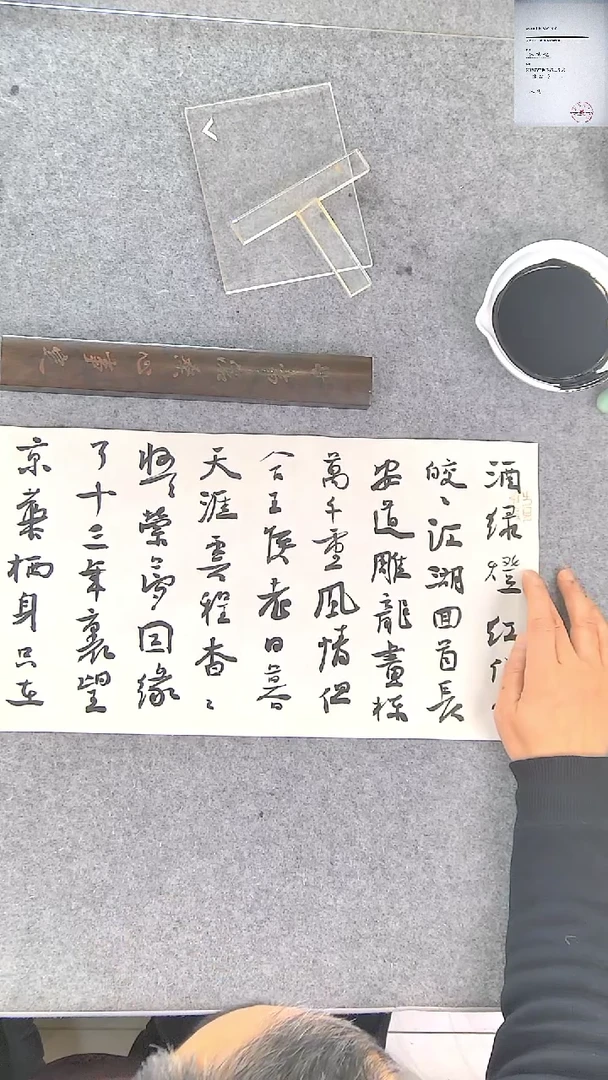 酒绿燈红
皎〻江湖回首長
安道雕龍畫棟
萬千重風情但
王侯老日暮
天涯雲程杳〻
榮夢因緣
了十三年裏望
京華栖身只在